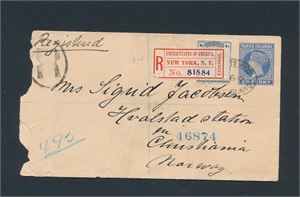 Registered
R
UNITED STATES OF AMERICA.
NEW YORK, N.Y.
No. 81884
EXCHANGE
TURKS ISLANDS
PENNY
Mrs Sigrid Jacobsen
Hvalstad station
pr
46874
Christiania
Norway
495